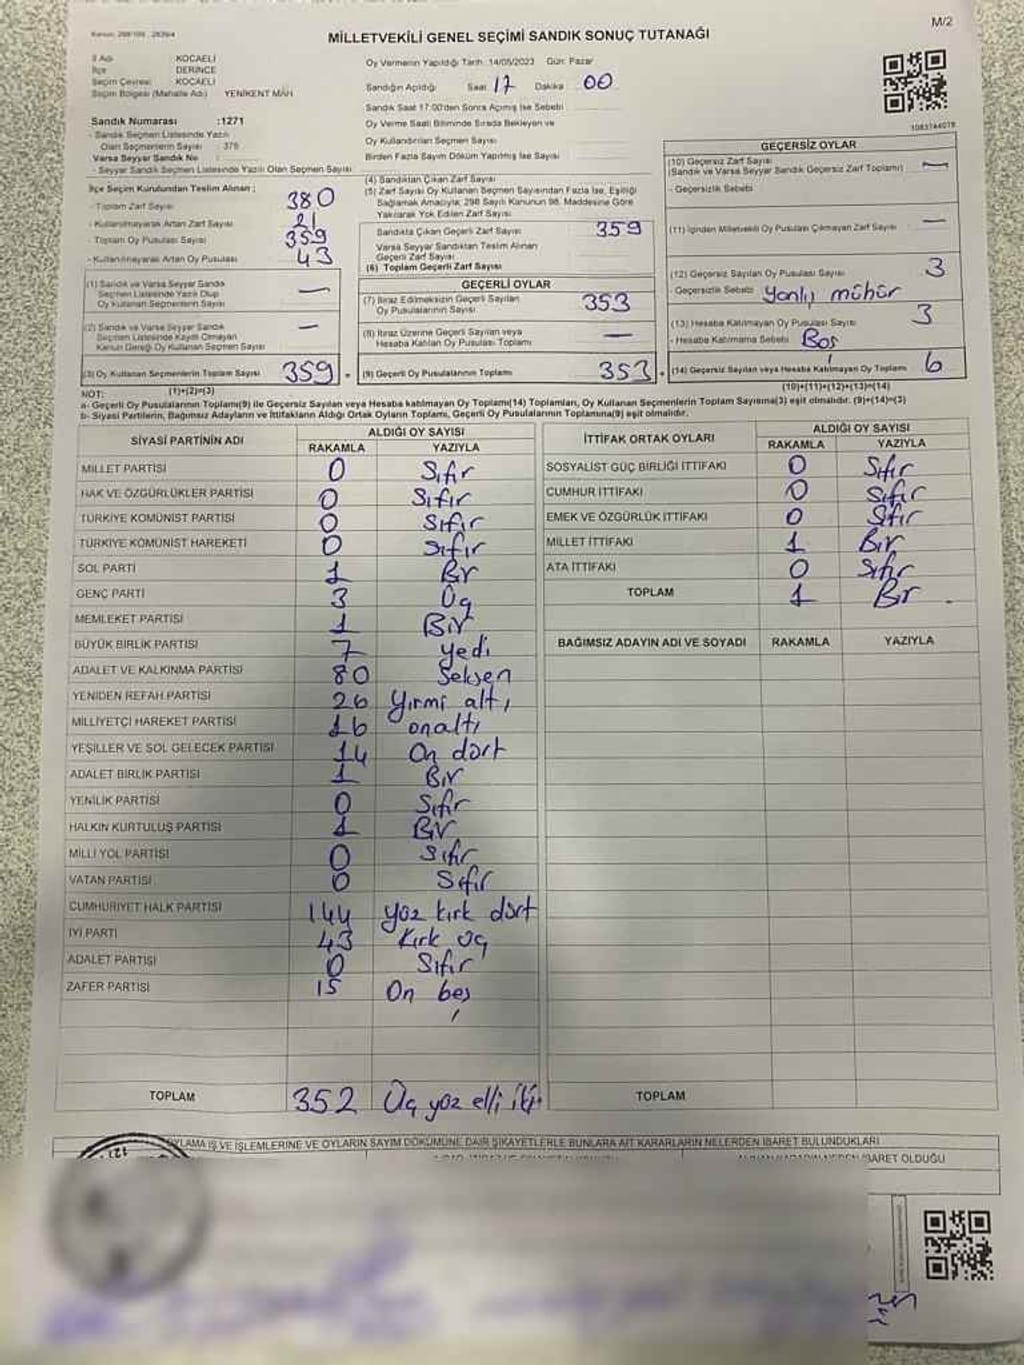 M/2
MİLLETVEKİLİ GENEL SEÇİMİ SANDIK SONUÇ TUTANAĞI
İl Adı KOCAELİ
İlçe DERİNCE
Seçim Çevresi KOCAELİ
Seçim Bölgesi (Mahalle Adı) YENİKENT MAH
Sandık Numarası :1271
- Sandık Seçmen Listesinde Yazılı
Olan Seçmenlerin Sayısı 376
Varsa Seyyar Sandık No
- Seyyar Sandık Seçmen Listesinde Yazılı Olan Seçmen Sayısı
İlçe Seçim Kurulundan Teslim Alınan ;
- Toplam Zarf Sayısı 380
- Kullanılmayarak Artan Zarf Sayısı 21
- Toplam Oy Pusulası Sayısı 359
- Kullanılmayarak Artan Oy Pusulası 43
(1) Sandık ve Varsa Seyyar Sandık
Seçmen Listesinde Yazılı Olup
Oy Kullanan Seçmenlerin Sayısı —
(2) Sandık ve Varsa Seyyar Sandık
Seçmen Listesinde Kaydı Olmayan
Kanun Gereği Oy Kullanan Seçmen Sayısı —
(3) Oy Kullanan Seçmenlerin Toplam Sayısı 359 =
(1)+(2)=(3)
Oy Vermenin Yapıldığı Tarih 14/05/2023 Gün: Pazar
Sandığın Açıldığı Saat 17 Dakika 00
Sandık Saat 17:00'den Sonra Açılmış İse Sebebi
Oy Verme Saati Bitiminde Sırada Bekleyen ve
Oy Kullandırılan Seçmen Sayısı
Birden Fazla Sayım Döküm Yapılmış İse Sayısı
(4) Sandıktan Çıkan Zarf Sayısı
(5) Zarf Sayısı Oy Kullanan Seçmen Sayısından Fazla İse, Eşitliği
Sağlamak Amacıyla; 298 Sayılı Kanunun 98. Maddesine Göre
Yakılarak Yok Edilen Zarf Sayısı
Sandıkta Çıkan Geçerli Zarf Sayısı 359
Varsa Seyyar Sandıktan Teslim Alınan
Geçerli Zarf Sayısı
(6) Toplam Geçerli Zarf Sayısı
GEÇERLİ OYLAR
(7) İtiraz Edilmeksizin Geçerli Sayılan
Oy Pusulalarının Sayısı 353
(8) İtiraz Üzerine Geçerli Sayılan veya
Hesaba Katılan Oy Pusulası Toplamı —
(9) Geçerli Oy Pusulalarının Toplamı 353 +
1083744078
GEÇERSİZ OYLAR
(10) Geçersiz Zarf Sayısı
(Sandık ve Varsa Seyyar Sandık Geçersiz Zarf Toplamı) —
- Geçersizlik Sebebi
(11) İçinden Milletvekili Oy Pusulası Çıkmayan Zarf Sayısı —
(12) Geçersiz Sayılan Oy Pusulası Sayısı 3
- Geçersizlik Sebebi Yanlış mühür
(13) Hesaba Katılmayan Oy Pusulası Sayısı 3
- Hesaba Katılmama Sebebi Boş
(14) Geçersiz Sayılan veya Hesaba Katılmayan Oy Toplamı 6
(10)+(11)+(12)+(13)=(14)
NOT:
a- Geçerli Oy Pusulalarının Toplamı(9) ile Geçersiz Sayılan veya Hesaba Katılmayan Oy Toplamı(14) Toplamları, Oy Kullanan Seçmenlerin Toplam Sayısına(3) eşit olmalıdır. (9)+(14)=(3)
b- Siyasi Partilerin, Bağımsız Adayların ve İttifakların Aldığı Ortak Oyların Toplamı, Geçerli Oy Pusulalarının Toplamına(9) eşit olmalıdır.
SİYASİ PARTİNİN ADI ALDIĞI OY SAYISI
RAKAMLA YAZIYLA
MİLLET PARTİSİ 0 Sıfır
HAK VE ÖZGÜRLÜKLER PARTİSİ 0 Sıfır
TÜRKİYE KOMÜNİST PARTİSİ 0 Sıfır
TÜRKİYE KOMÜNİST HAREKETİ 0 Sıfır
SOL PARTİ 1 Bir
GENÇ PARTİ 3 Üç
MEMLEKET PARTİSİ 1 Bir
BÜYÜK BİRLİK PARTİSİ 7 yedi
ADALET VE KALKINMA PARTİSİ 80 Seksen
YENİDEN REFAH PARTİSİ 26 Yirmi altı
MİLLİYETÇİ HAREKET PARTİSİ 16 onaltı
YEŞİLLER VE SOL GELECEK PARTİSİ 14 On dört
ADALET BİRLİK PARTİSİ 1 Bir
YENİLİK PARTİSİ 0 Sıfır
HALKIN KURTULUŞ PARTİSİ 1 Bir
MİLLİ YOL PARTİSİ 0 Sıfır
VATAN PARTİSİ 0 Sıfır
CUMHURİYET HALK PARTİSİ 144 yüz kırk dört
İYİ PARTİ 43 Kırk üç
ADALET PARTİSİ 0 Sıfır
ZAFER PARTİSİ 15 On beş
TOPLAM 352 Üç yüz elli iki
İTTİFAK ORTAK OYLARI ALDIĞI OY SAYISI
RAKAMLA YAZIYLA
SOSYALİST GÜÇ BİRLİĞİ İTTİFAKI 0 Sıfır
CUMHUR İTTİFAKI 0 Sıfır
EMEK VE ÖZGÜRLÜK İTTİFAKI 0 Sıfır
MİLLET İTTİFAKI 1 Bir
ATA İTTİFAKI 0 Sıfır
TOPLAM 1 Bir
BAĞIMSIZ ADAYIN ADI VE SOYADI RAKAMLA YAZIYLA
TOPLAM
OYLAMA İŞ VE İŞLEMLERİNE VE OYLARIN SAYIM DÖKÜMÜNE DAİR ŞİKAYETLERLE BUNLARA AİT KARARLARIN NELERDEN İBARET BULUNDUKLARI
İBARET OLDUĞU